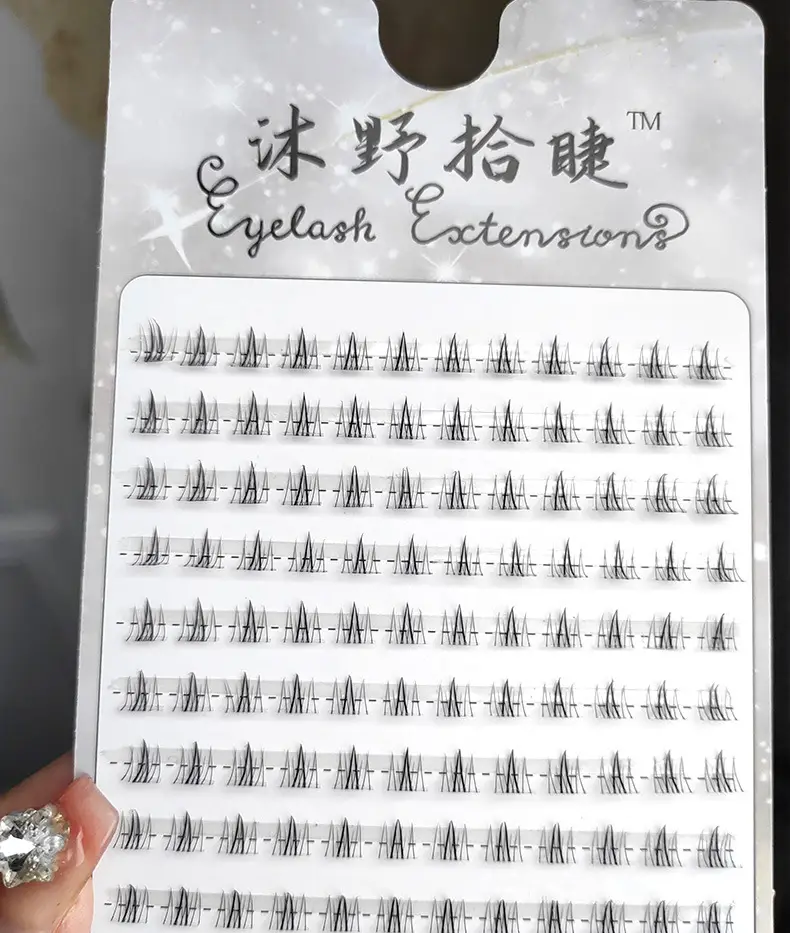 沐野拾睫™
Eyelash Extensions